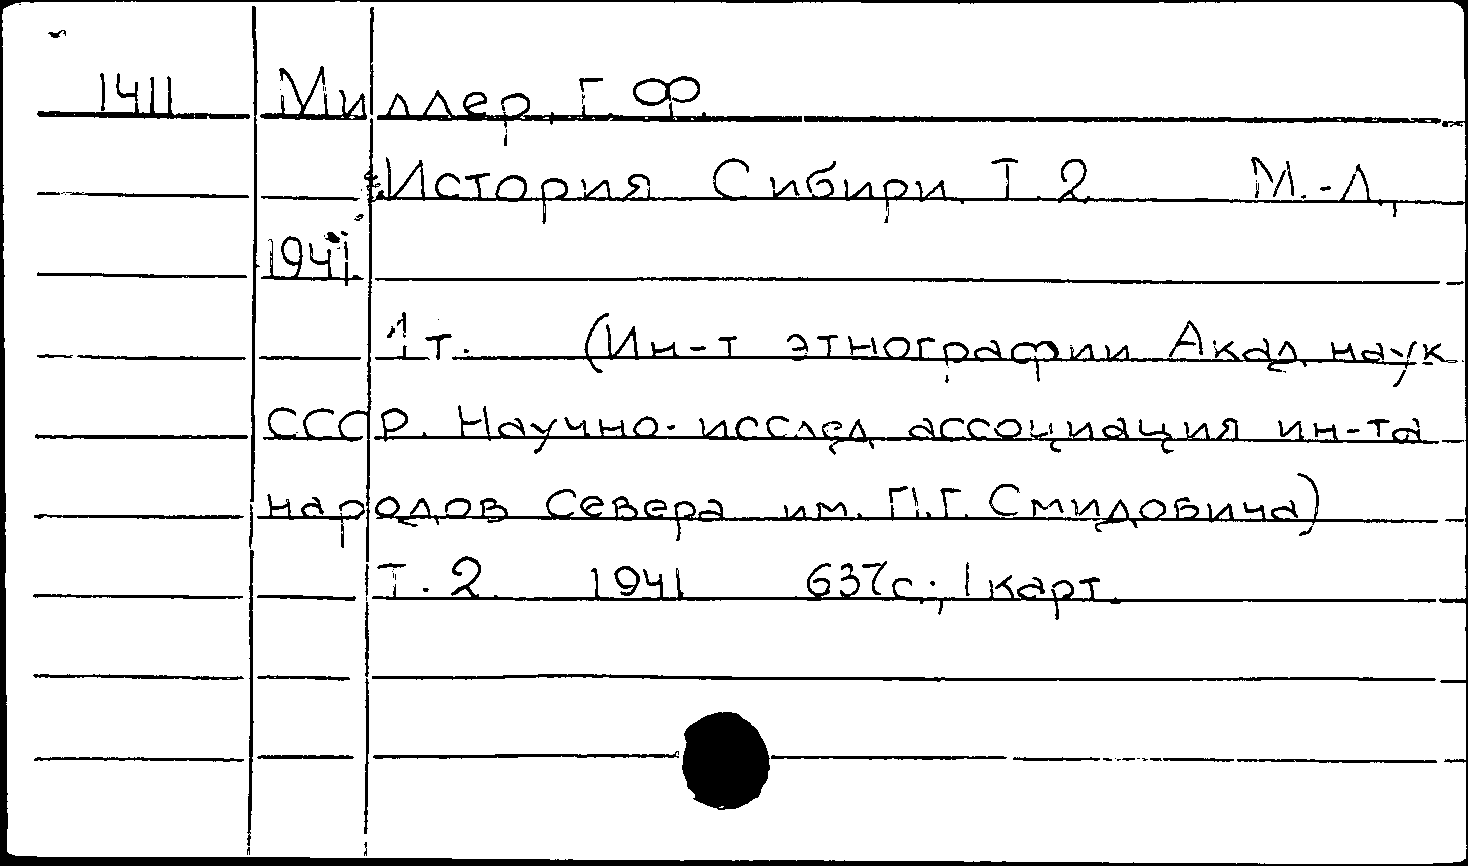 1411 Миллер, Г. Ф.
История Сибири. Т. 2 М.-Л.,
1941.
1 т. (Ин-т этнографии Акад. наук
СССР. Научно-исслед. ассоциация ин-та
народов Севера им. П.Г. Смидовича)
Т. 2. 1941 637с.; 1 карт.